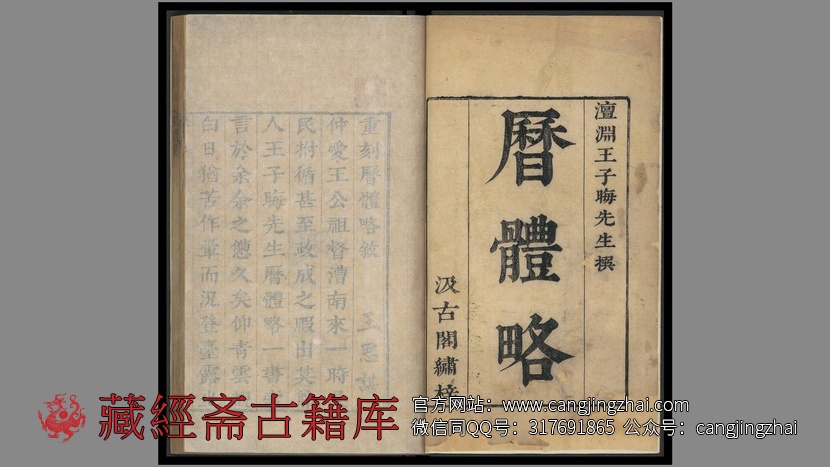 澶淵王子晦先生撰
曆體略
汲古閣繡梓
重刻曆體略敘
仲愛王公祖督漕南來一時
民拊循甚至政成之暇出其
人王子晦先生曆體略一書
言於余余之憊久矣仰青雲
白日猶苦作暈而況登臺露
藏經斋古籍库
官方网站：www.cangjingzhai.com
微信同QQ号：317691865 公众号：cangjingzhai